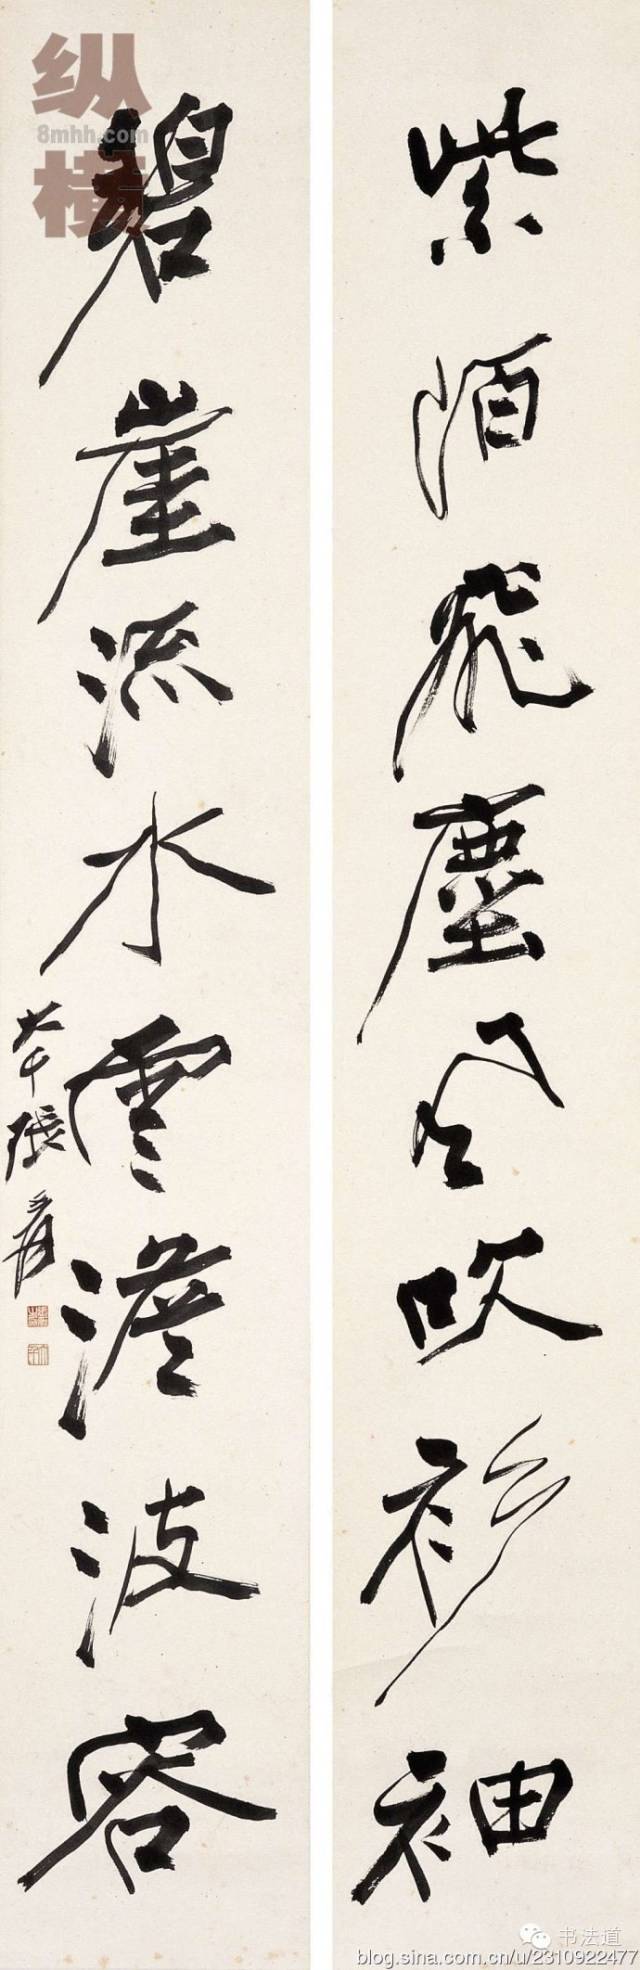 紫陌飛塵風吹衫袖
碧崖流水雲澹波容
大千張爰
纵横
8mhh.com
书法道
blog.sina.com.cn/u/2310922477